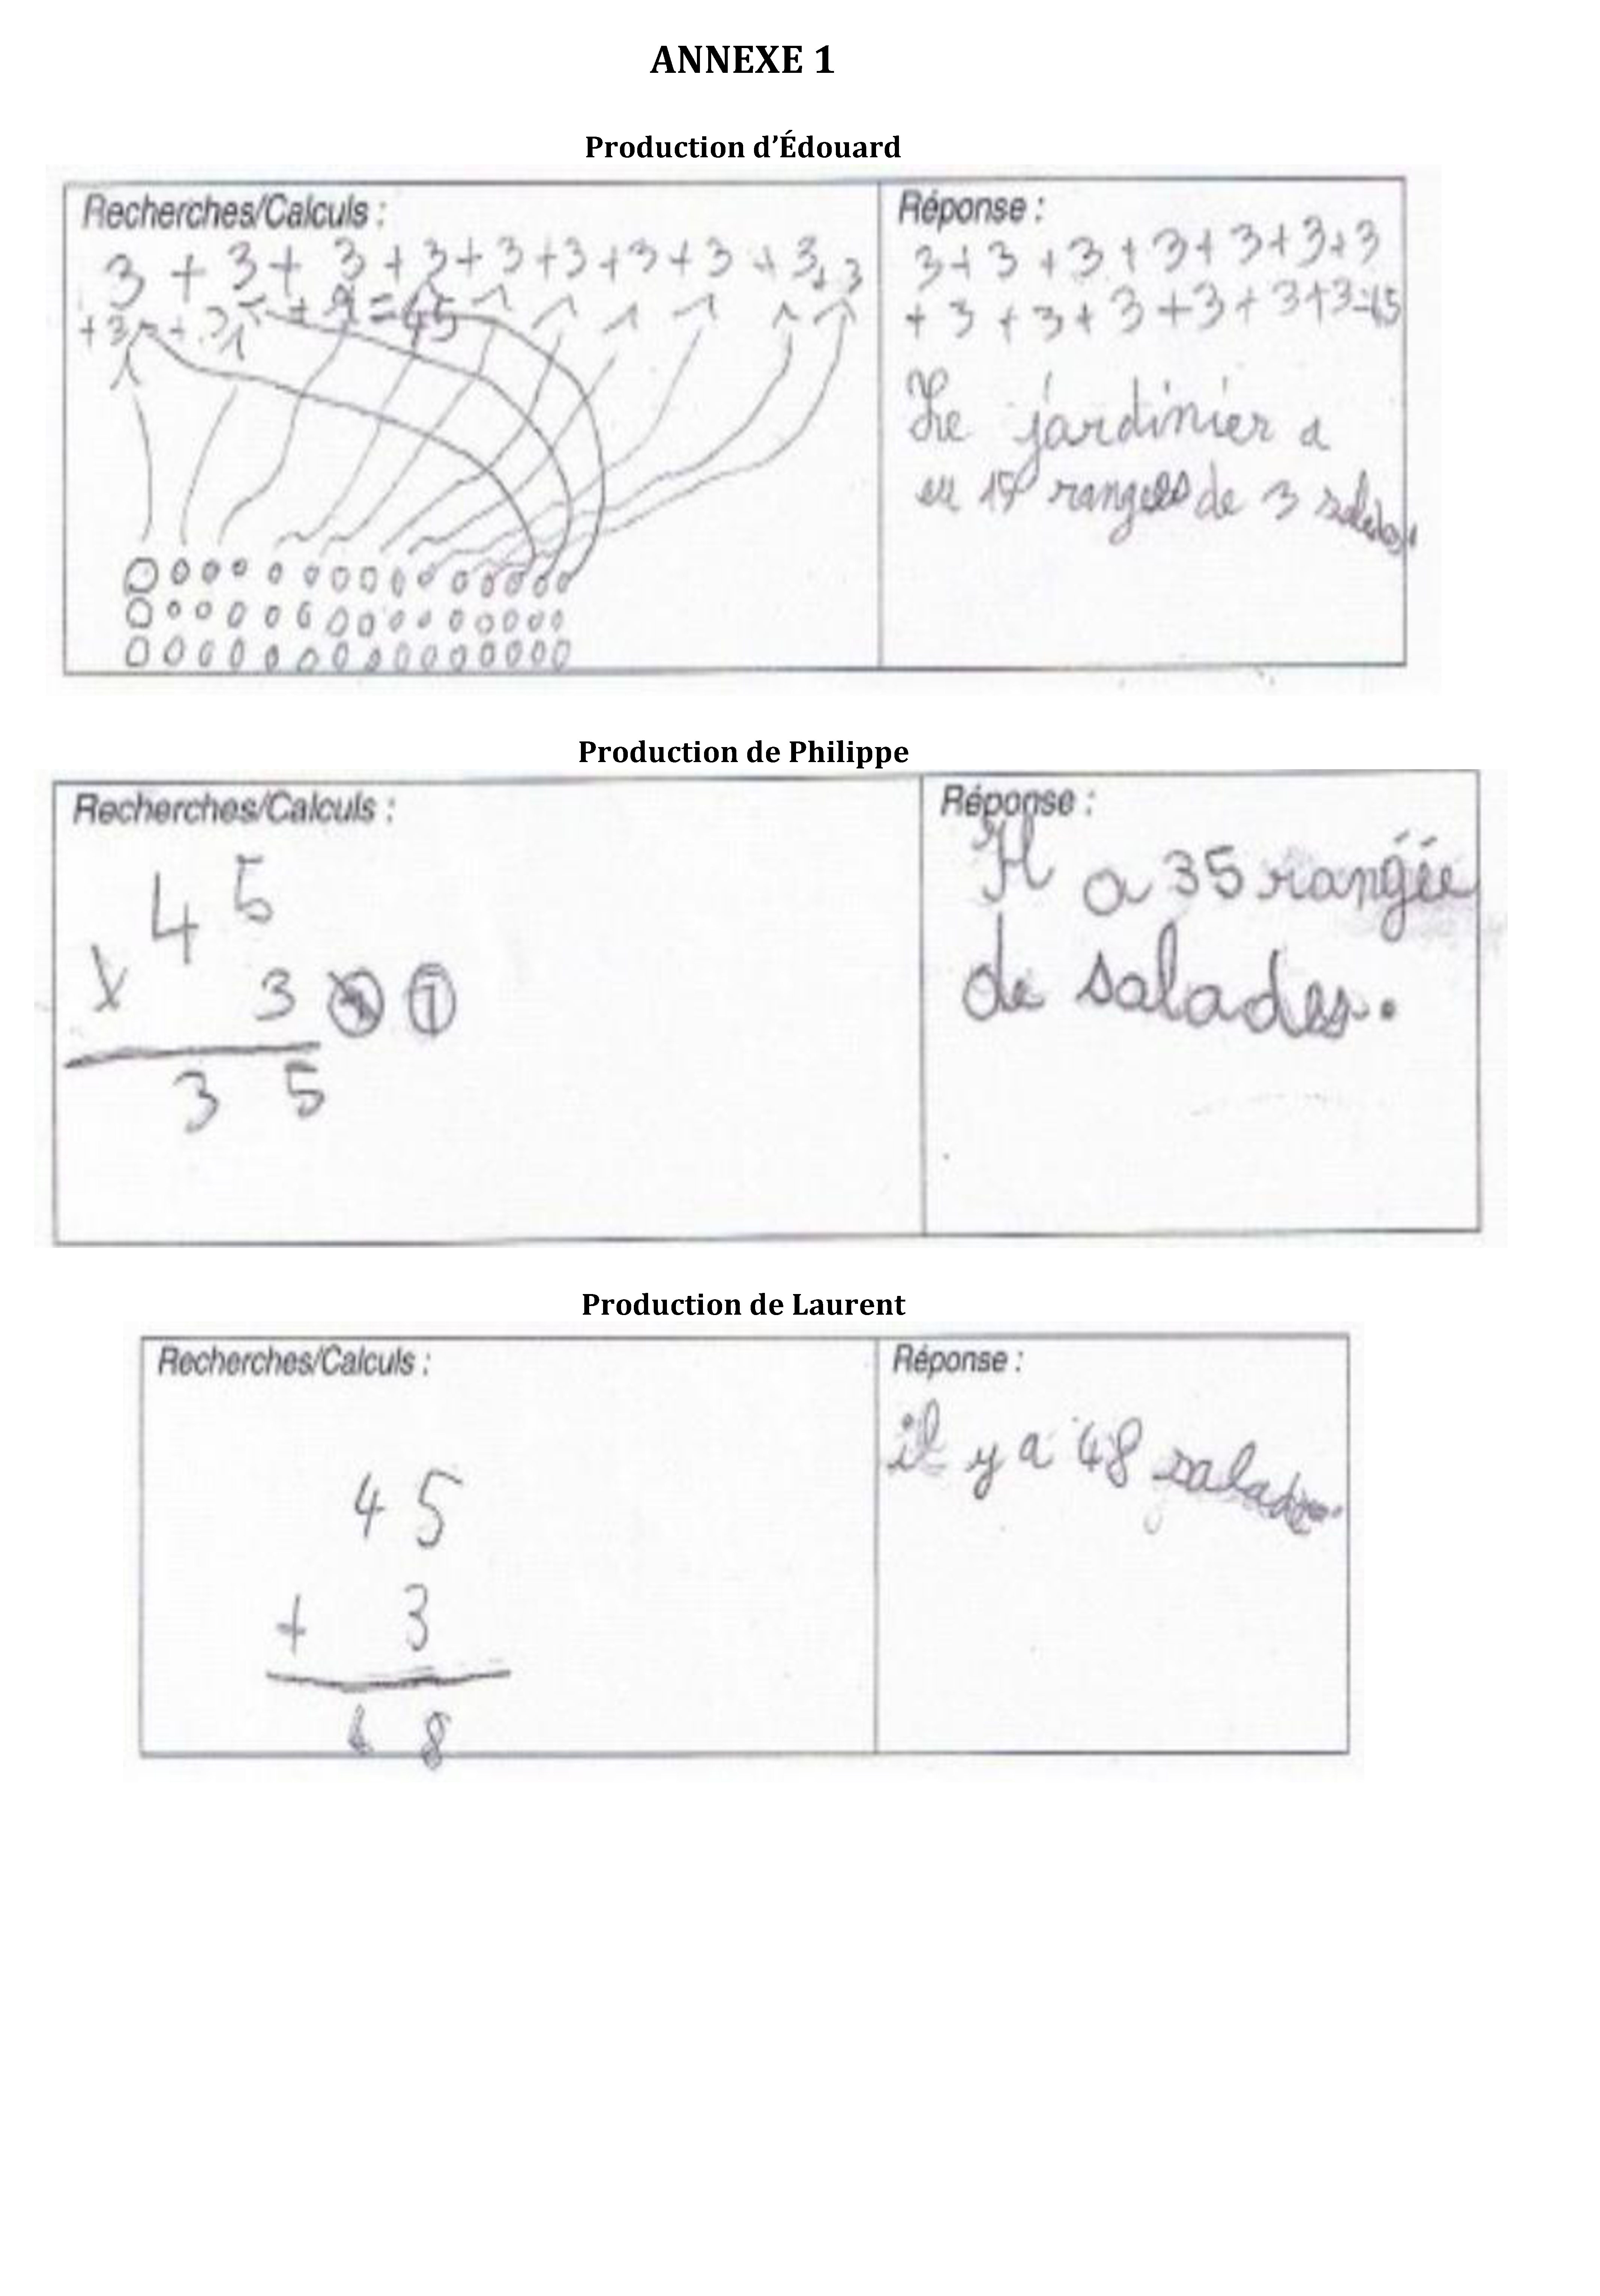 ANNEXE 1
Production d'Édouard
Recherches/Calculs :
3 + 3 + 3 + 3 + 3 + 3 + 3 + 3 + 3 + 3
+ 3 + 3 + = 45
Réponse :
3 + 3 + 3 + 3 + 3 + 3 + 3
+ 3 + 3 + 3 + 3 + 3 + 3 = 45
Le jardinier a
eu rangées de 3 salades.
Production de Philippe
Recherches/Calculs :
4 5
x 3 1
3 5
Réponse :
Il a 35 rangée
de salades.
Production de Laurent
Recherches/Calculs :
4 5
+ 3
4 8
Réponse :
il y a 48 salades.